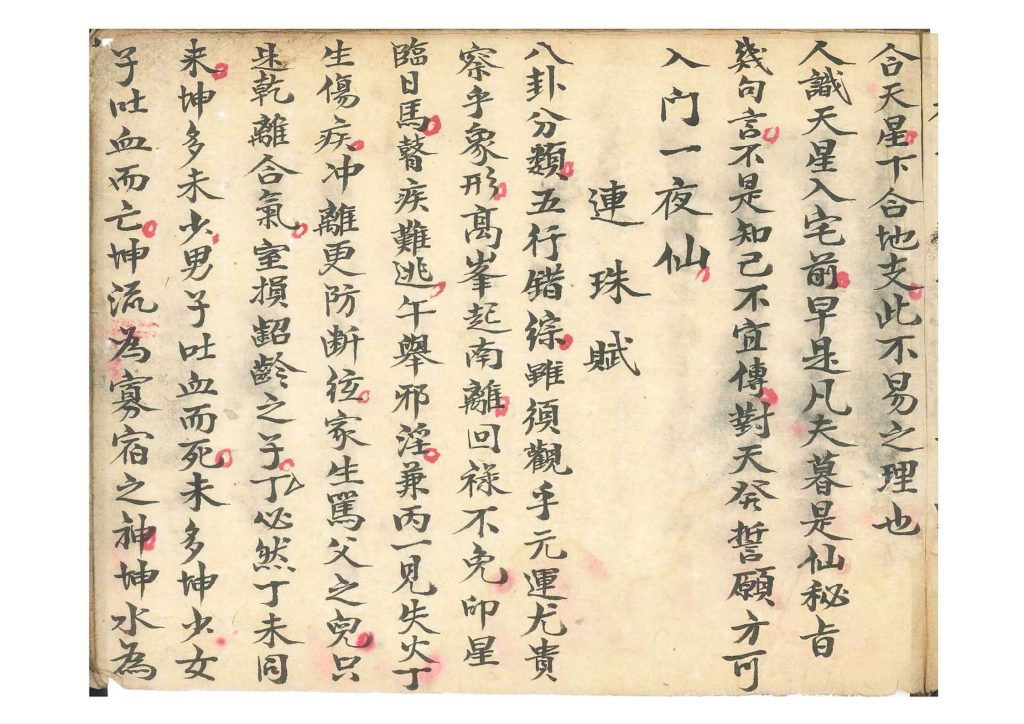 合天星下合地支此不易之理也
人識天星入宅前早是凡夫暮是仙秘旨
幾句言不是知己不宜傳對天癸誓願方可
入门一夜仙
連珠賦
八卦分類五行錯綜雖須觀乎元運尤貴
察乎象形髙峯起南離回祿不免印星
臨日馬瞽疾難逃午舉邪淫兼丙一見失火丁
生傷疾冲離更防断後家生罵父之兒只
乾離合氣室損齠齡之子丁必然丁未同
来坤多未少男子吐血而死未多坤少女
子吐血而亡坤流為寡宿之神坤水為